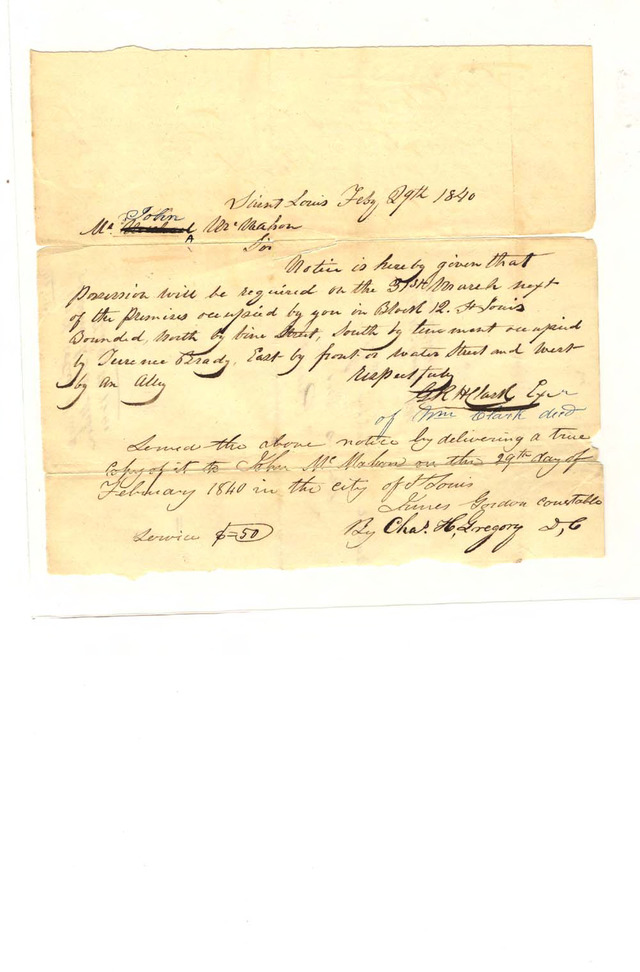 Saint Louis Feby 29th 1840
John
Mr Mc Mahon
Sir
Notice is hereby given that
possession will be required on the 31st March next
of the premises occupied by you in Block 12. St Louis
Bounded, North by vine Street, South by tenement occupied
by Terrence Brady, East by front or water Street and West
by an Alley
respectfully
G R H Clark Exr
of Wm Clark decd
Served the above notice by delivering a true
copy of it to John Mc Mahon on this 29th day of
February 1840 in the city of St Louis
James Gordon constable
Service $-50 By Chas. H. Gregory D, C